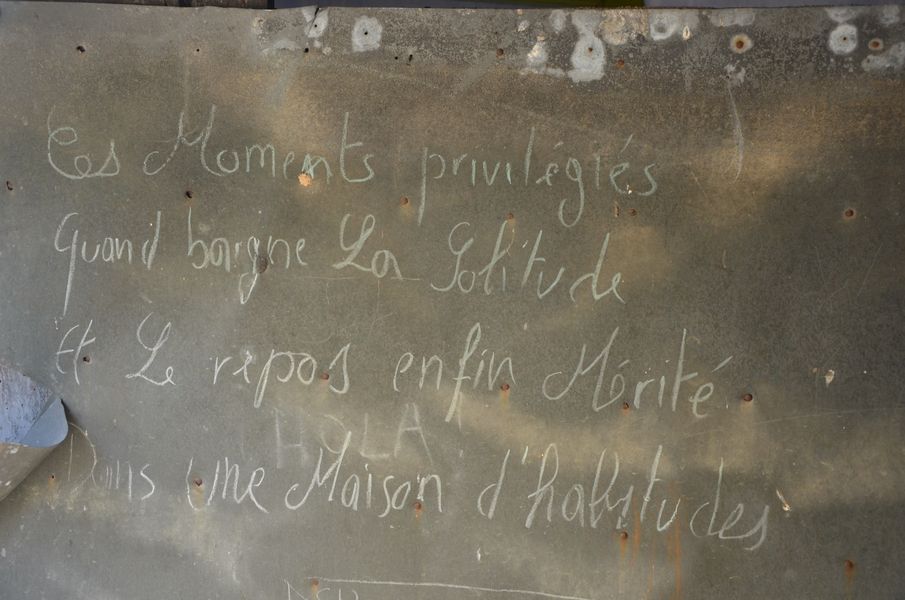 Ces Moments privilégiés
Quand baigne La Solitude
Et Le repos enfin Mérité.
HOLA
Dans une Maison d'habitudes